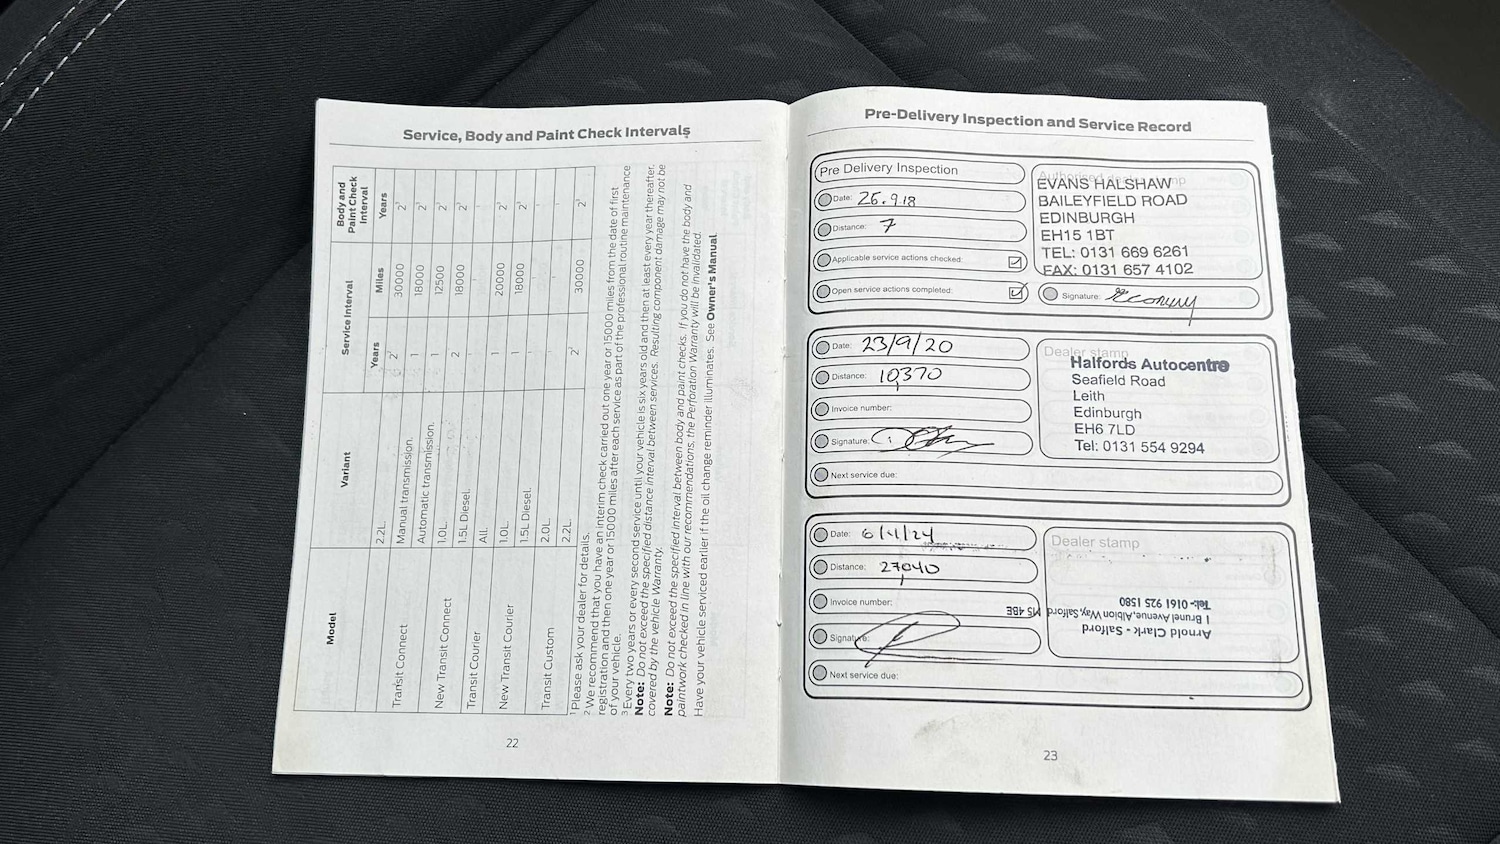 Service, Body and Paint Check Intervals
Model
Variant
Service Interval
Body and Paint Check Interval
Years
Miles
Years
2.2L.
Transit Connect
Manual transmission.
2²
30000
2³
Automatic transmission.
1
18000
2³
New Transit Connect
1.0L.
1
12500
2³
1.5L Diesel.
2
18000
2³
Transit Courier
All.
New Transit Courier
1.0L.
1
20000
2³
1.5L Diesel.
1
18000
2³
Transit Custom
2.0L.
2.2L.
2²
30000
2³
¹ Please ask your dealer for details.
² We recommend that you have an interim check carried out one year or 15000 miles from the date of first
registration and then one year or 15000 miles after each service as part of the professional routine maintenance
of your vehicle.
³ Every two years or every second service until your vehicle is six years old and then at least every year thereafter.
Note: Do not exceed the specified distance interval between services. Resulting component damage may not be
covered by the vehicle Warranty.
Note: Do not exceed the specified interval between body and paint checks. If you do not have the body and
paintwork checked in line with our recommendations, the Perforation Warranty will be invalidated.
Have your vehicle serviced earlier if the oil change reminder illuminates. See Owner's Manual.
22
Pre-Delivery Inspection and Service Record
Pre Delivery Inspection
Date: 26.9.18
Distance: 7
Applicable service actions checked:
Open service actions completed:
Authorised dealer stamp
EVANS HALSHAW
BAILEYFIELD ROAD
EDINBURGH
EH15 1BT
TEL: 0131 669 6261
FAX: 0131 657 4102
Signature:
Date: 23/9/20
Distance: 10,370
Invoice number:
Signature:
Next service due:
Dealer stamp
Halfords Autocentre
Seafield Road
Leith
Edinburgh
EH6 7LD
Tel: 0131 554 9294
Date:
Distance: 27,040
Invoice number:
Signature:
Next service due:
Dealer stamp
Arnold Clark - Salford
1 Brunel Avenue, Albion Way, Salford, M5 4BE
Tel:- 0161 925 1580
23